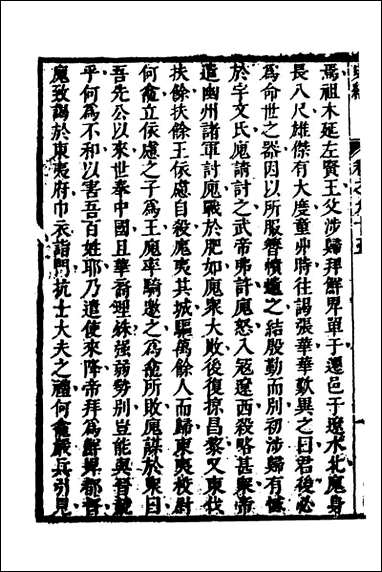 焉祖木延左賢王父涉歸拜鮮卑單于遷邑于遼水北廆身
長八尺雄傑有大度童丱時往謁張華華歎異之曰君後必
為命世之器因以所服簪幘遺之結殷勤而別初涉歸有憾
於宇文氏廆請討之武帝弗許廆怒入寇遼西殺略甚衆帝
遣幽州諸軍討廆戰於肥如廆衆大敗後復掠昌黎又東伐
扶餘扶餘王依慮自殺廆夷其城驅萬餘人而歸東夷校尉
何龕立依慮之子為王廆率騎邀之為龕所敗廆謀於衆曰
吾先公以來世奉中國且華裔理殊强弱勢別豈能與晉競
乎何為不和以害吾百姓耶乃遣使來降帝拜為鮮卑都督
廆致謁於東夷府巾衣詣門抗士大夫之禮何龕嚴兵引見